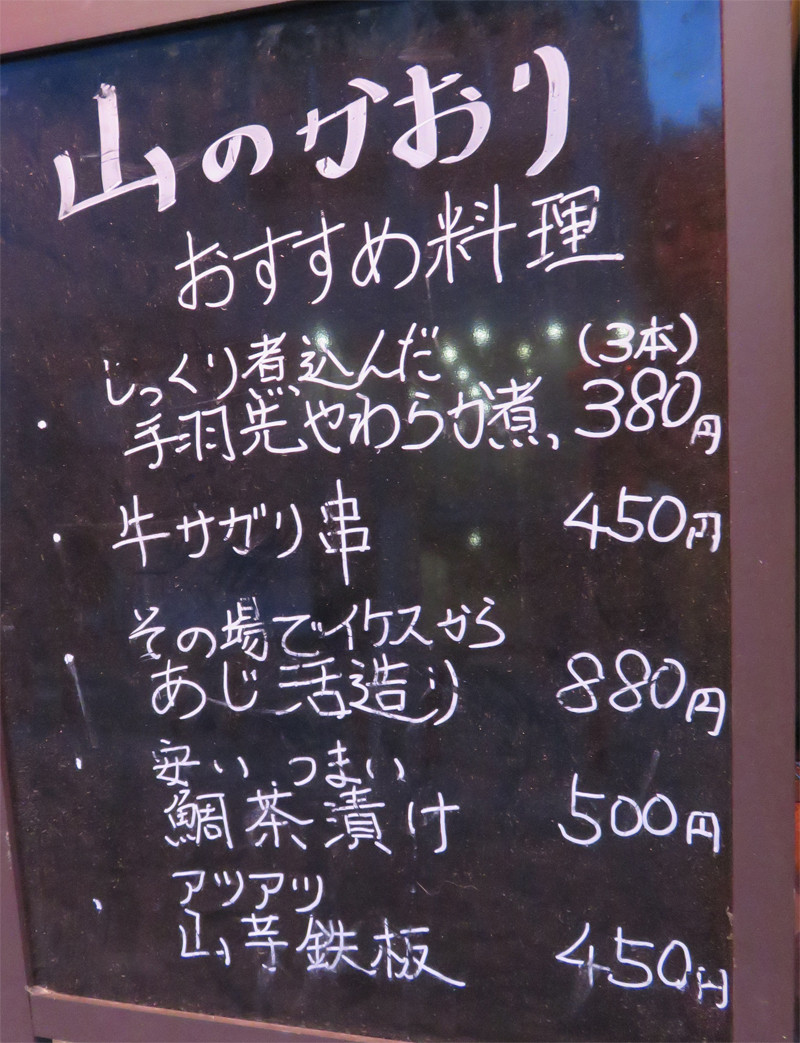 山のかおり
おすすめ料理
じっくり煮込んだ (3本)
・手羽先やわらか煮、380円
・牛サガリ串 450円
その場でイケスから
・あじ活造り 880円
・安い うまい
鯛茶漬け 500円
アツアツ
・山芋鉄板 450円